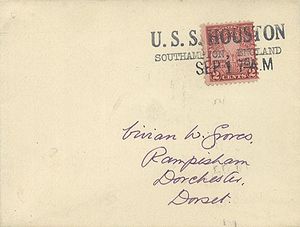 U. S. S. HOUSTON
SOUTHAMPTON, ENGLAND
SEP 1 7 A.M
2 CENTS 2
Vivian W. Groves,
Rampisham
Dorchester,
Dorset.